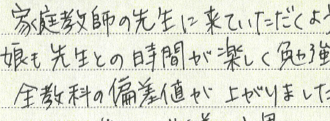 家庭教師の先生に来ていただくよ
娘も先生との時間が楽しく勉強
全教科の偏差値が上がりました